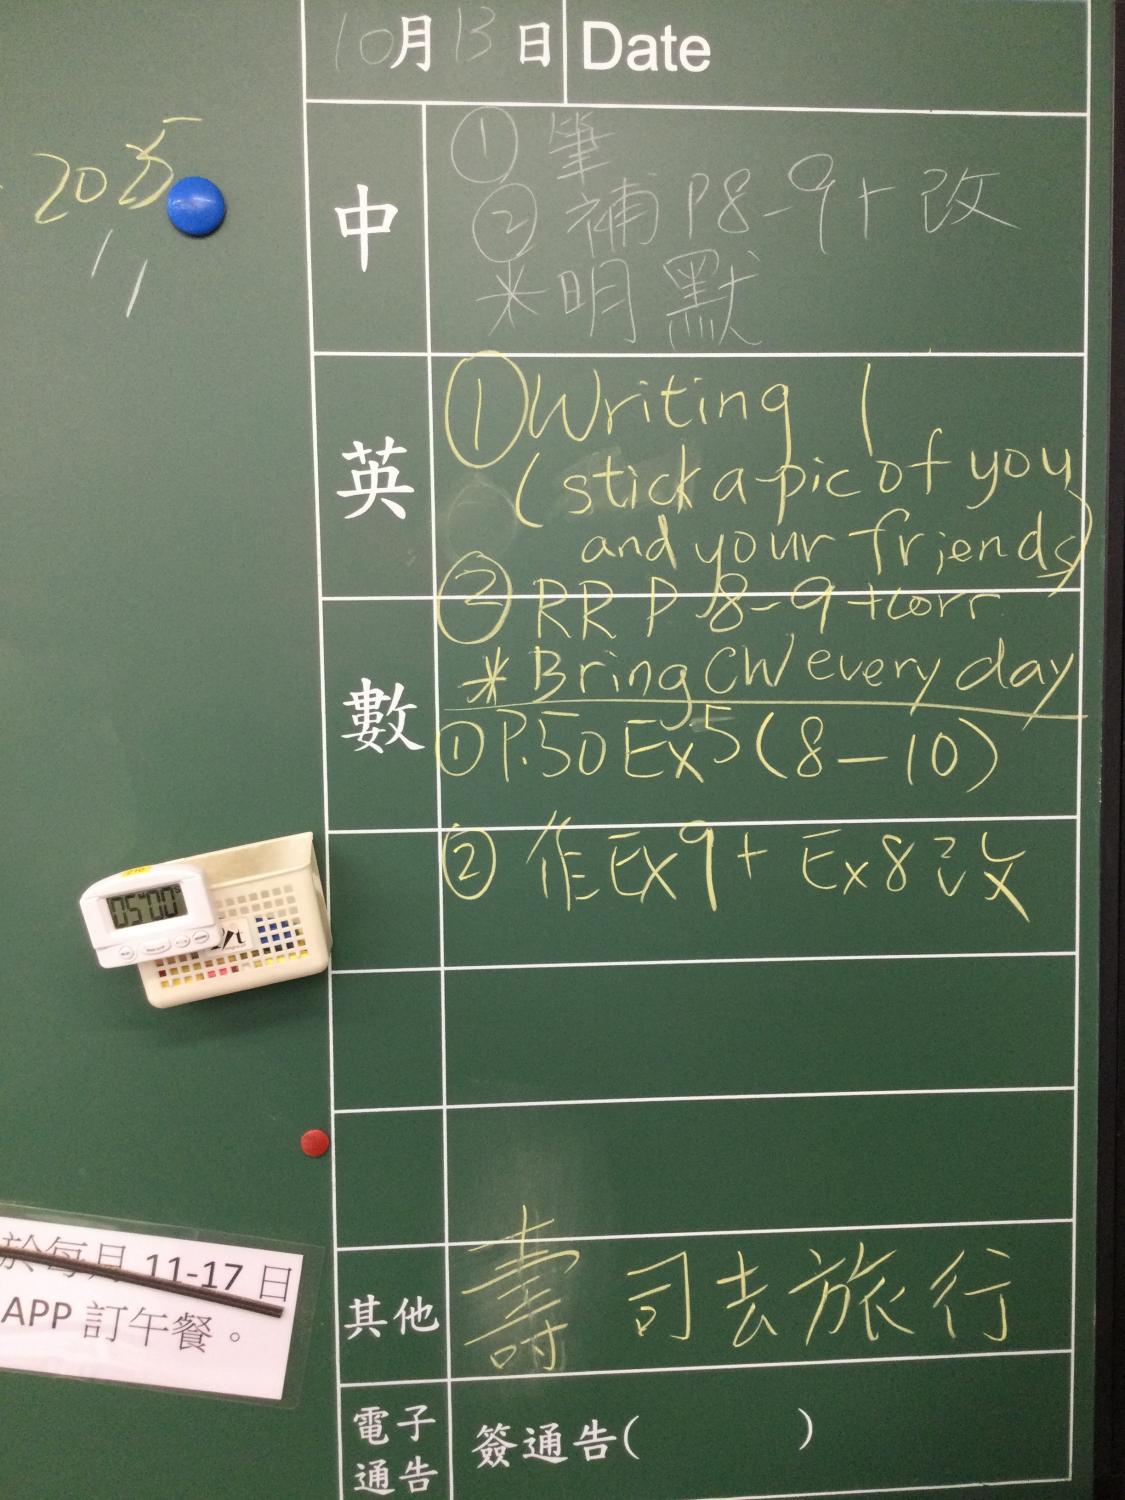 10月13日 Date
2025
中
① 筆
② 補 P8-9+改
*明 默
英
① Writing 1
(stick a pic of you
and your friends)
② RR P 8-9 +corr
* Bring CW every day
數
① P.50 Ex5 (8-10)
② 作Ex9+ Ex8改
05 00
於每月 11-17 日
APP 訂午餐。
其他
壽司去旅行
電子
通告
簽通告( )